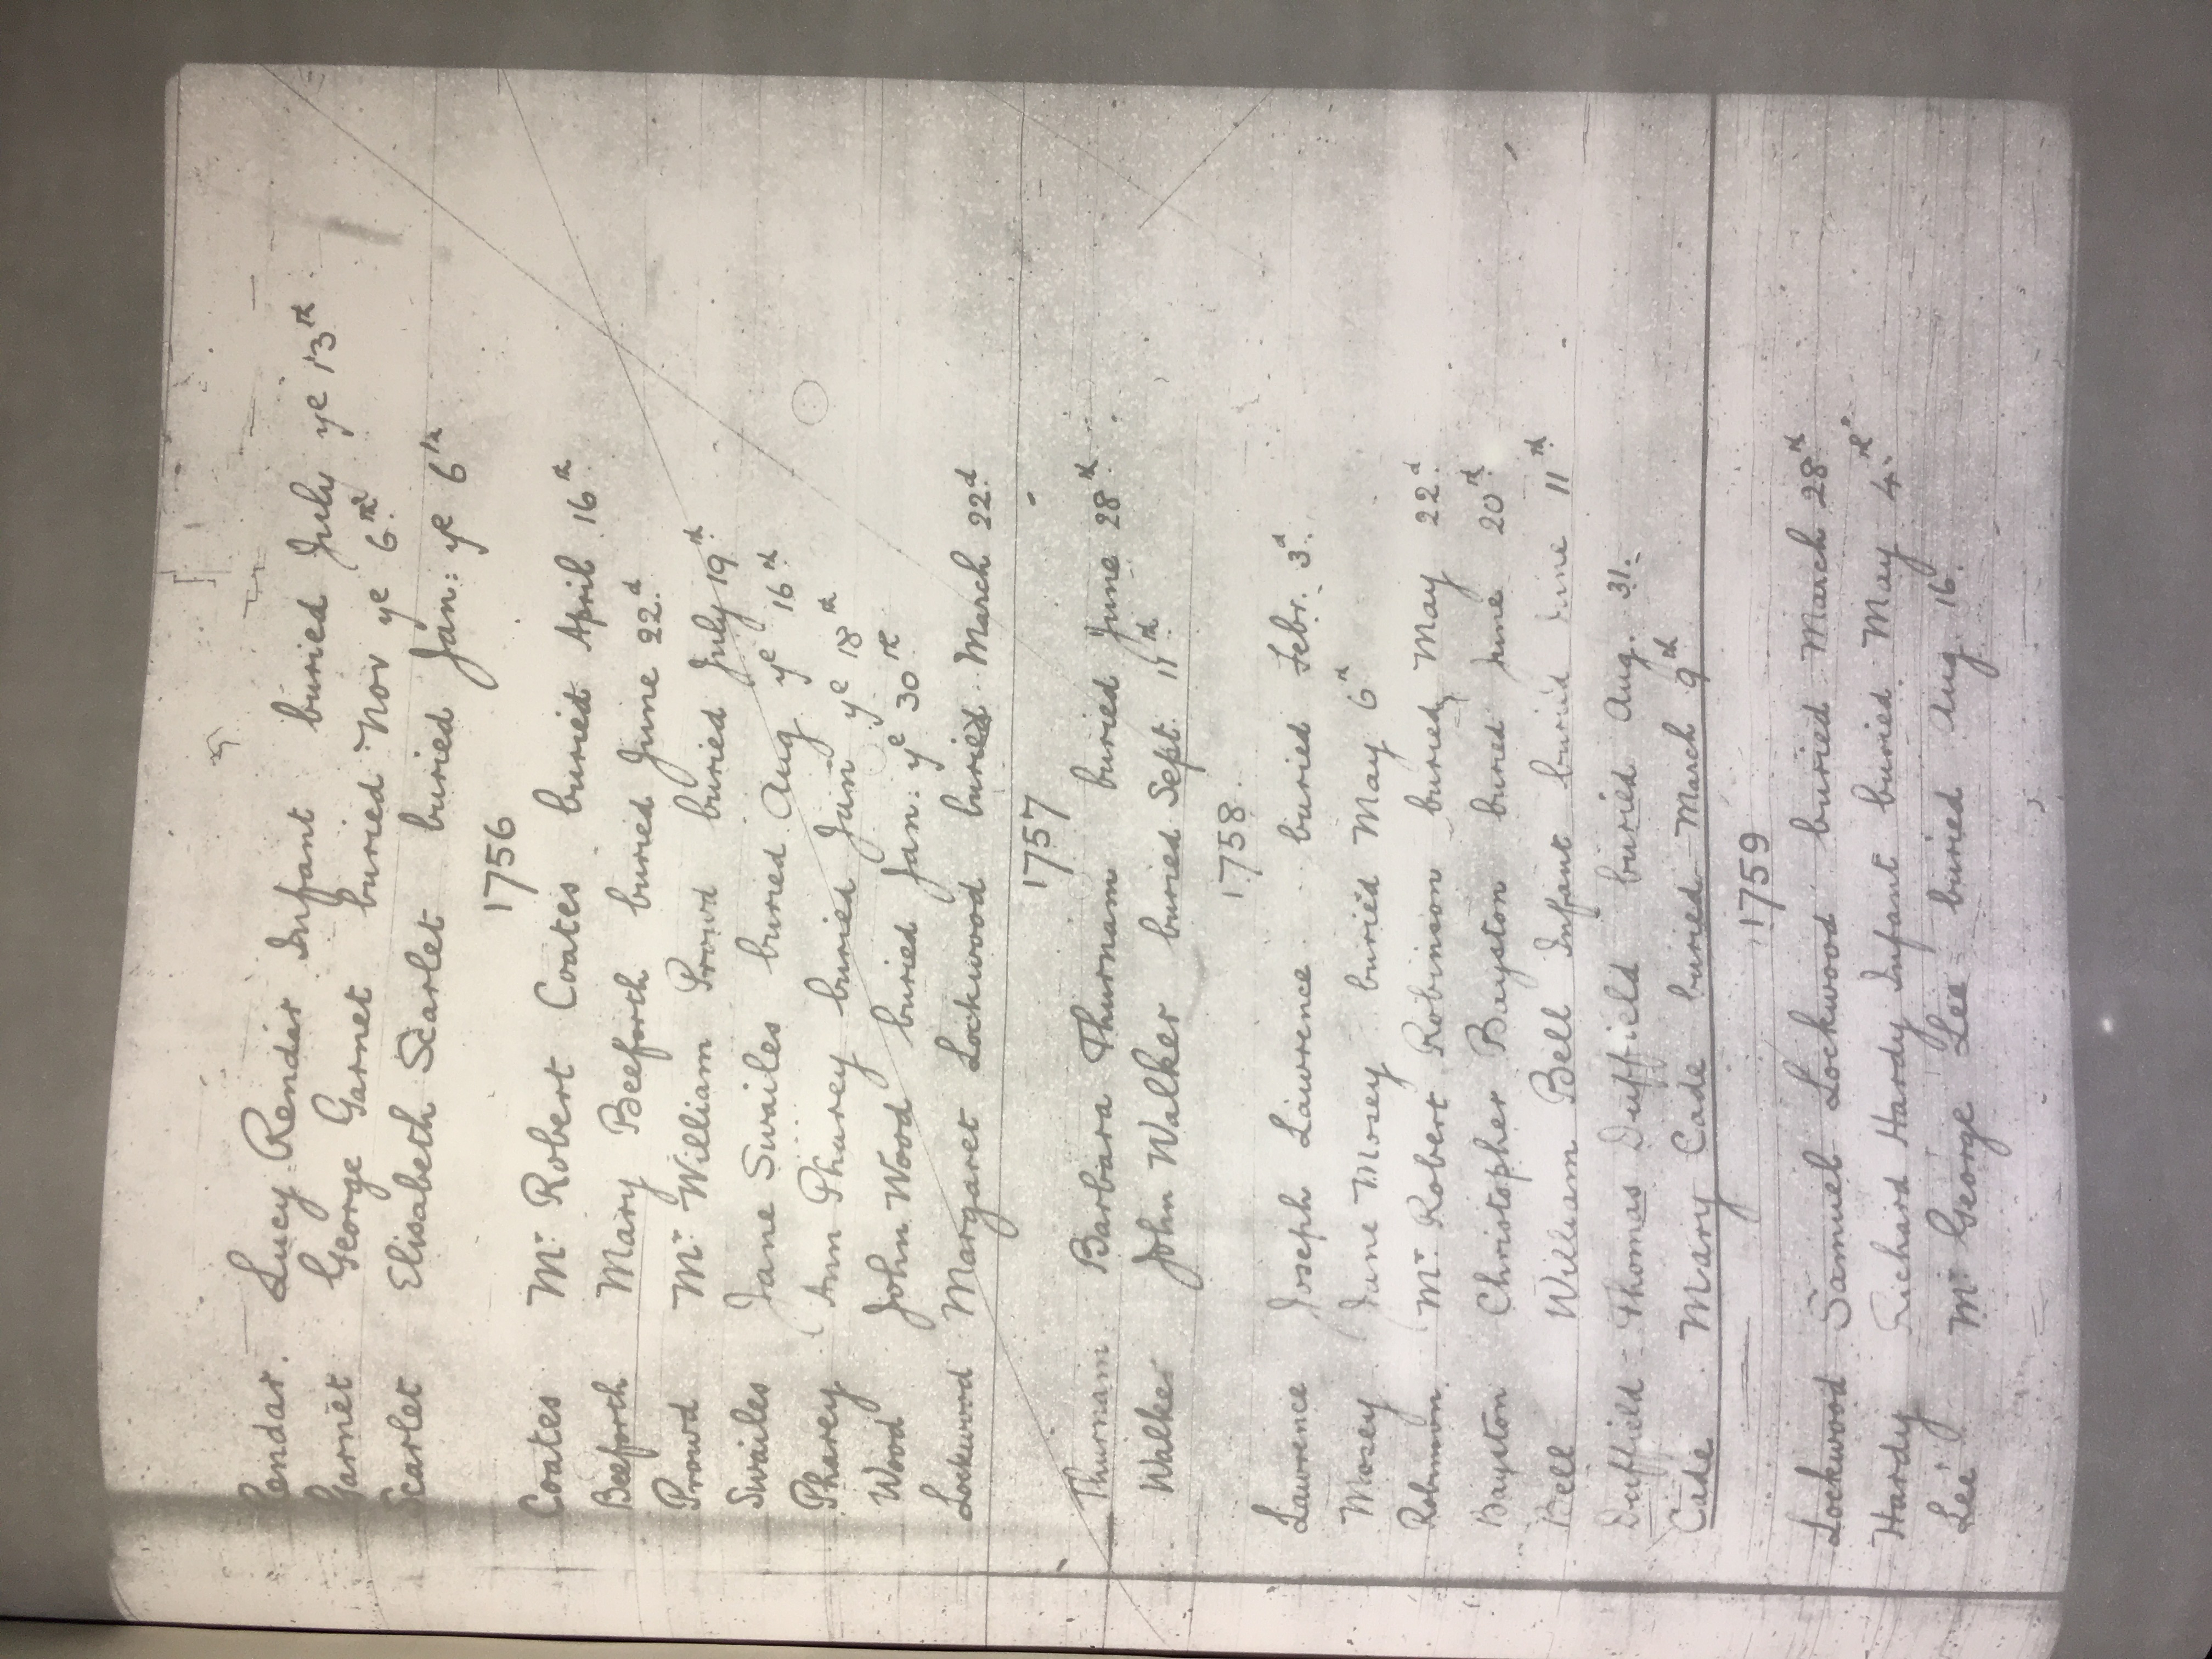 Rendar. Lucy Rendar Infant buried July ye 13th
Garnet George Garnet buried Nov ye 6th.
Scarlet Elisabeth Scarlet buried Jan: ye 6th
1756
Coates Mr. Robert Coates buried April 16th
Beeforth Mary Beeforth buried June 22d
Prowd Mr. William Prowd buried July 19th
Swailes Jane Swailes buried Aug ye 16th
Pharey Ann Pharey buried Jan ye 18th
Wood John Wood buried Jan: ye 30th
Lockwood Margaret Lockwood buried March 22d
1757
Thurnam Barbara Thurnam buried June 28th
Walker John Walker buried Sept. 11th
1758
Lawrence Joseph Lawrence buried Febr. 3d.
Mosey Jane Mosey buried May 6th
Robinson. Mr. Robert Robinson buried May 22d.
Bayston Christopher Bayston buried June 20th
Bell William Bell Infant buried June 11th
Duffield Thomas Duffield buried Aug. 31.
Cade Mary Cade buried March 9th
1759
Lockwood Samuel Lockwood buried March 28th
Hardy Richard Hardy Infant buried May 4th
Lee Mr George Lee buried Aug 16.